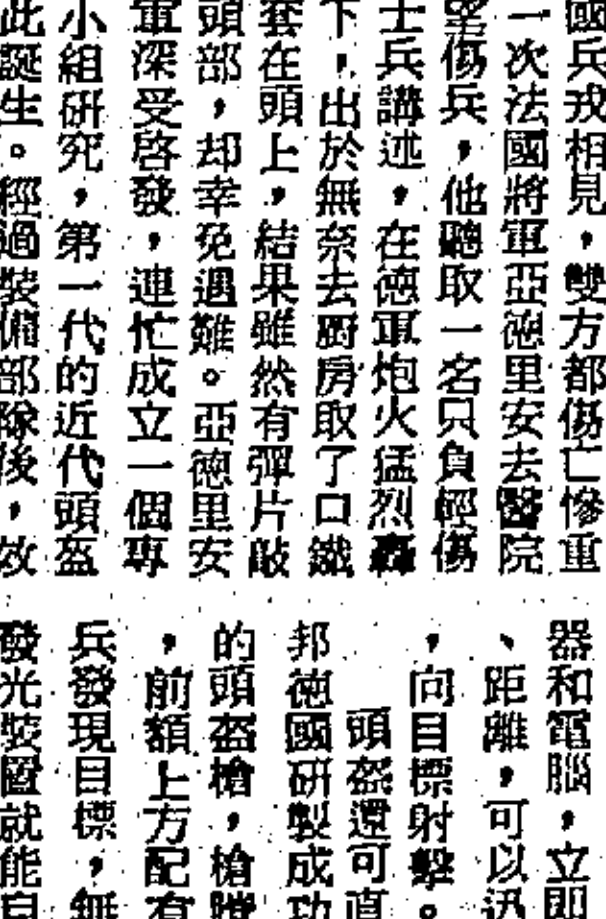 國兵戎相見，雙方都傷亡慘重
一次法國將軍亞德里安去醫院
望傷兵，他聽取一名只負輕傷
士兵講述，在德軍炮火猛烈轟
下，出於無奈去廚房取了口鐵
套在頭上，結果雖然有彈片敲
頭部，却幸免遇難。亞德里安
軍深受啓發，連忙成立一個專
小組研究，第一代的近代頭盔
此誕生。經過裝備部隊後，效
器和電腦，立即
、距離，可以迅
，向目標射擊。
頭盔還可直
邦德國研製成功
的頭盔槍，槍膛
，前額上方配有
兵發現目標，無
發光裝置就能自